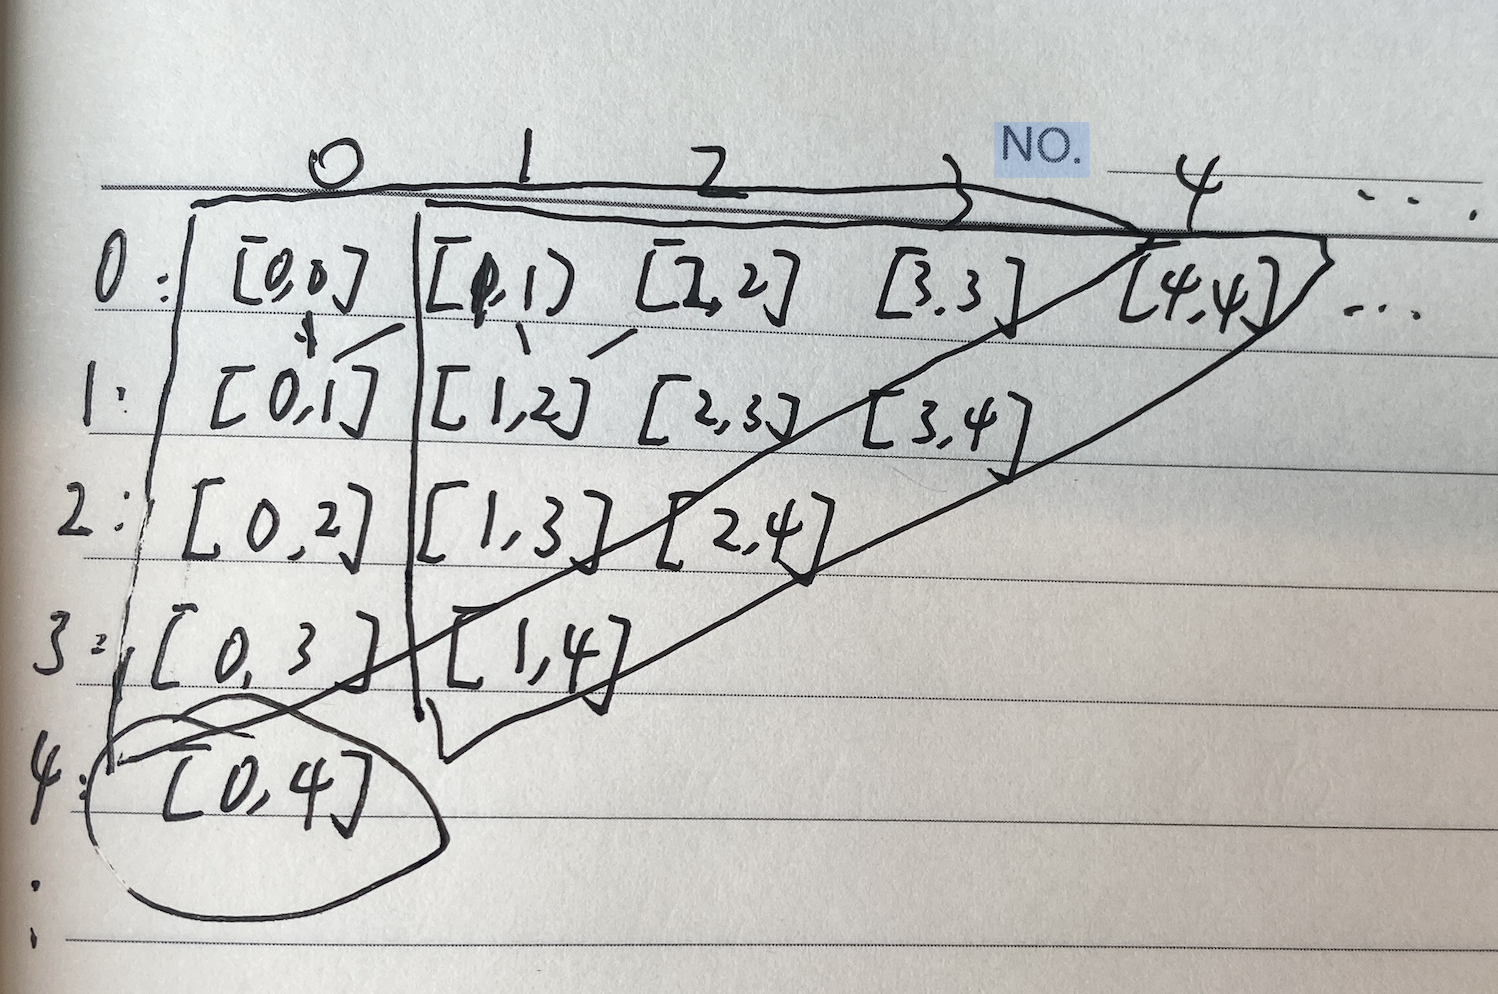 NO.
0 1 2 3 4 ...
0: [0,0] [1,1] [2,2] [3,3] [4,4] ...
1: [0,1] [1,2] [2,3] [3,4]
2: [0,2] [1,3] [2,4]
3: [0,3] [1,4]
4: [0,4]